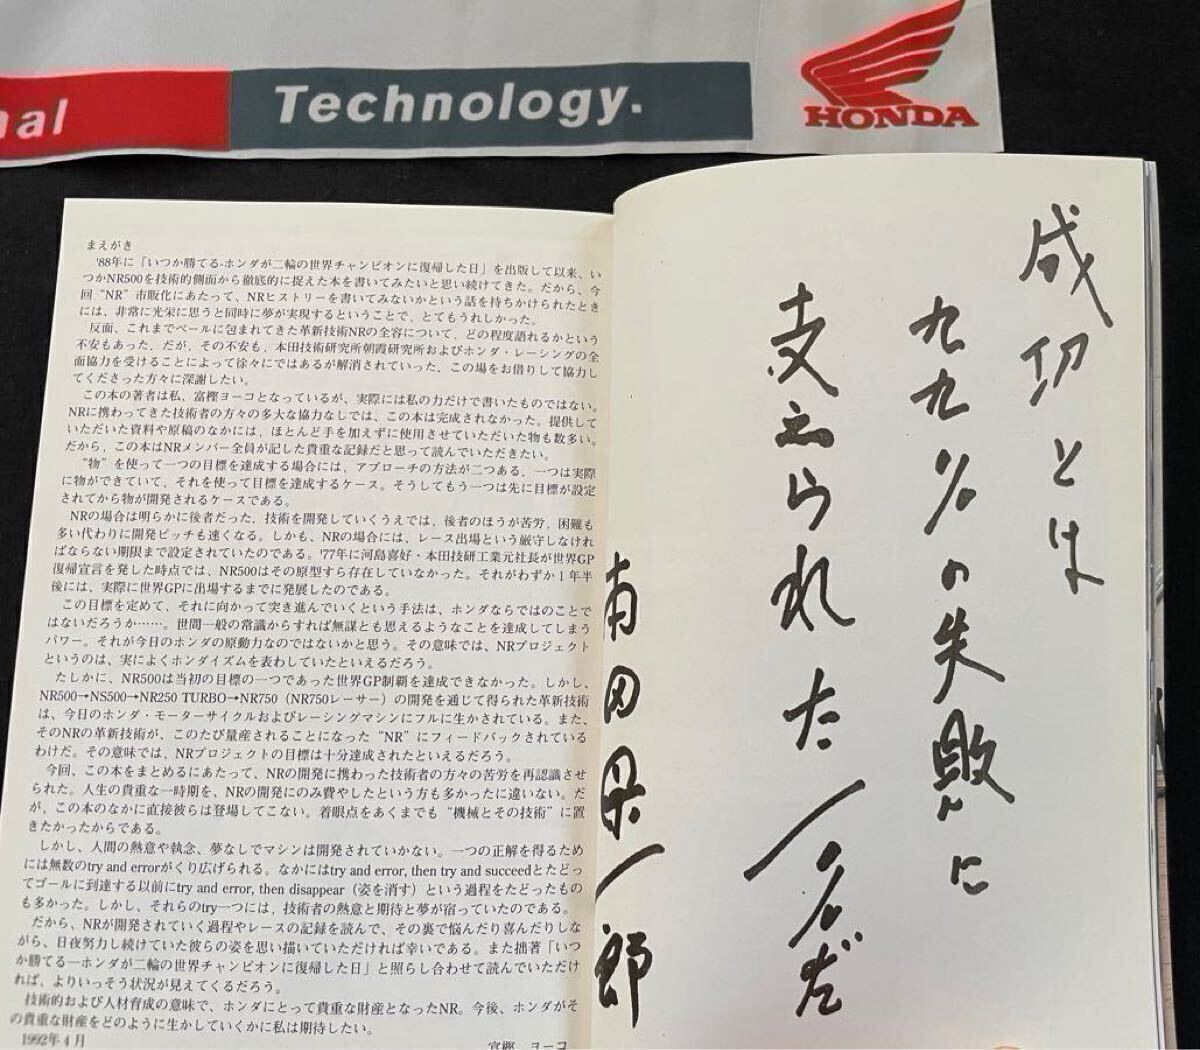 nal
Technology.
HONDA
まえがき
'88年に「いつか勝てる-ホンダが二輪の世界チャンピオンに復帰した日」を出版して以来、い
つかNR500を技術的側面から徹底的に捉えた本を書いてみたいと思い続けてきた。だから、今
回“NR”市販化にあたって、NRヒストリーを書いてみないかという話を持ちかけられたとき
には、非常に光栄に思うと同時に夢が実現するということで、とてもうれしかった。
反面、これまでベールに包まれてきた革新技術NRの全容について、どの程度語れるかという
不安もあった。だが、その不安も、本田技術研究所朝霞研究所およびホンダ・レーシングの全
面協力を受けることによって徐々にではあるが解消されていった。この場をお借りして協力し
てくださった方々に深謝したい。
この本の著者は私、富樫ヨーコとなっているが、実際には私の力だけで書いたものではない。
NRに携わってきた技術者の方々の多大な協力なしでは、この本は完成されなかった。提供して
いただいた資料や原稿のなかには、ほとんど手を加えずに使用させていただいた物も数多い。
だから、この本はNRメンバー全員が記した貴重な記録だと思って読んでいただきたい。
“物”を使って一つの目標を達成する場合には、アプローチの方法が二つある。一つは実際
に物ができていて、それを使って目標を達成するケース。そうしてもう一つは先に目標が設定
されてから物が開発されるケースである。
NRの場合は明らかに後者だった。技術を開発していくうえでは、後者のほうが苦労、困難も
多い代わりに開発ピッチも速くなる。しかも、NRの場合には、レース出場という厳守しなけれ
ばならない期限まで設定されていたのである。'77年に河島喜好・本田技研工業元社長が世界GP
復帰宣言を発した時点では、NR500はその原型すら存在していなかった。それがわずか1年半
後には、実際に世界GPに出場するまでに発展したのである。
この目標を定めて、それに向かって突き進んでいくという手法は、ホンダならではのことで
はないだろうか……。世間一般の常識からすれば無謀とも思えるようなことを達成してしまう
パワー。それが今日のホンダの原動力なのではないかと思う。その意味では、NRプロジェクト
というのは、実によくホンダイズムを表わしていたといえるだろう。
たしかに、NR500は当初の目標の一つであった世界GP制覇を達成できなかった。しかし、
NR500→NS500→NR250 TURBO→NR750（NR750レーサー）の開発を通じて得られた革新技術
は、今日のホンダ・モーターサイクルおよびレーシングマシンにフルに生かされている。また、
そのNRの革新技術が、このたび量産されることになった“NR”にフィードバックされている
わけだ。その意味では、NRプロジェクトの目標は十分達成されたといえるだろう。
今回、この本をまとめるにあたって、NRの開発に携わった技術者の方々の苦労を再認識させ
られた。人生の貴重な一時期を、NRの開発にのみ費やしたという方も多かったに違いない。だ
が、この本のなかに直接彼らは登場してこない。着眼点をあくまでも“機械とその技術”に置
きたかったからである。
しかし、人間の熱意や執念、夢なしでマシンは開発されていかない。一つの正解を得るため
には無数のtry and errorがくり広げられる。なかにはtry and error, then try and succeedとたどっ
てゴールに到達する以前にtry and error, then disappear（姿を消す）という過程をたどったもの
も多かった。しかし、それらのtry一つには、技術者の熱意と期待と夢が宿っていたのである。
だから、NRが開発されていく過程やレースの記録を読んで、その裏で悩んだり喜んだりしな
がら、日夜努力し続けていた彼らの姿を思い描いていただければ幸いである。また拙著「いつ
か勝てる―ホンダが二輪の世界チャンピオンに復帰した日」と照らし合わせて読んでいただけ
れば、よりいっそう状況が見えてくるだろう。
技術的および人材育成の意味で、ホンダにとって貴重な財産となったNR。今後、ホンダがそ
の貴重な財産をどのように生かしていくかに私は期待したい。
1992年4月
富樫 ヨーコ
成功とは
九九%の失敗に
支えられた
一%だ
本田宗一郎